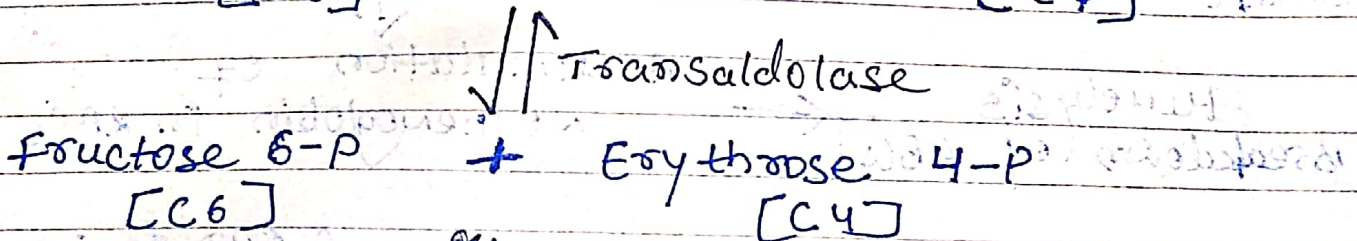 Transaldolase
Fructose 6-P + Erythrose 4-P
[C6] [C4]